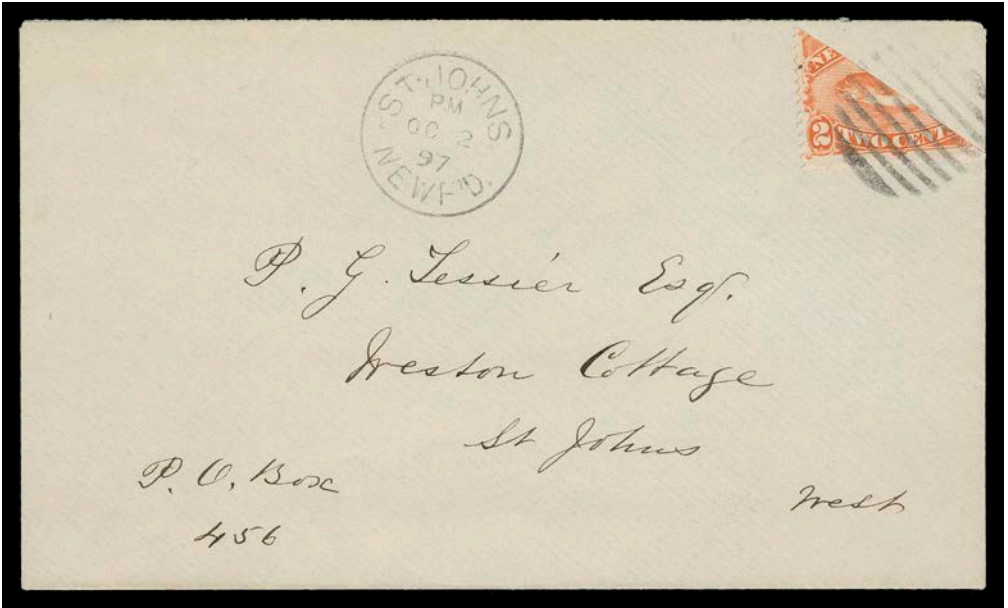 ST. JOHNS
PM
OC 2
97
NEWF'D.
NE
2 TWO CENT
P. G. Tessier Esq.
Weston Cottage
St Johns
West
P. O. Box
456